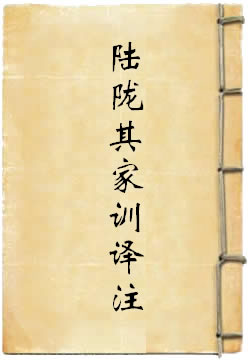 陆陇其家训译注